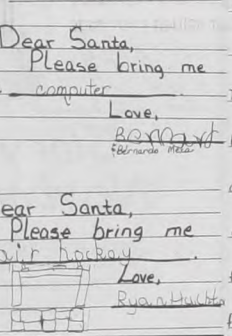 Dear Santa,
Please bring me
computer.
Love,
Bernardo
Bernardo Meza
ear Santa,
Please bring me
air hockey.
Love,
Ryan